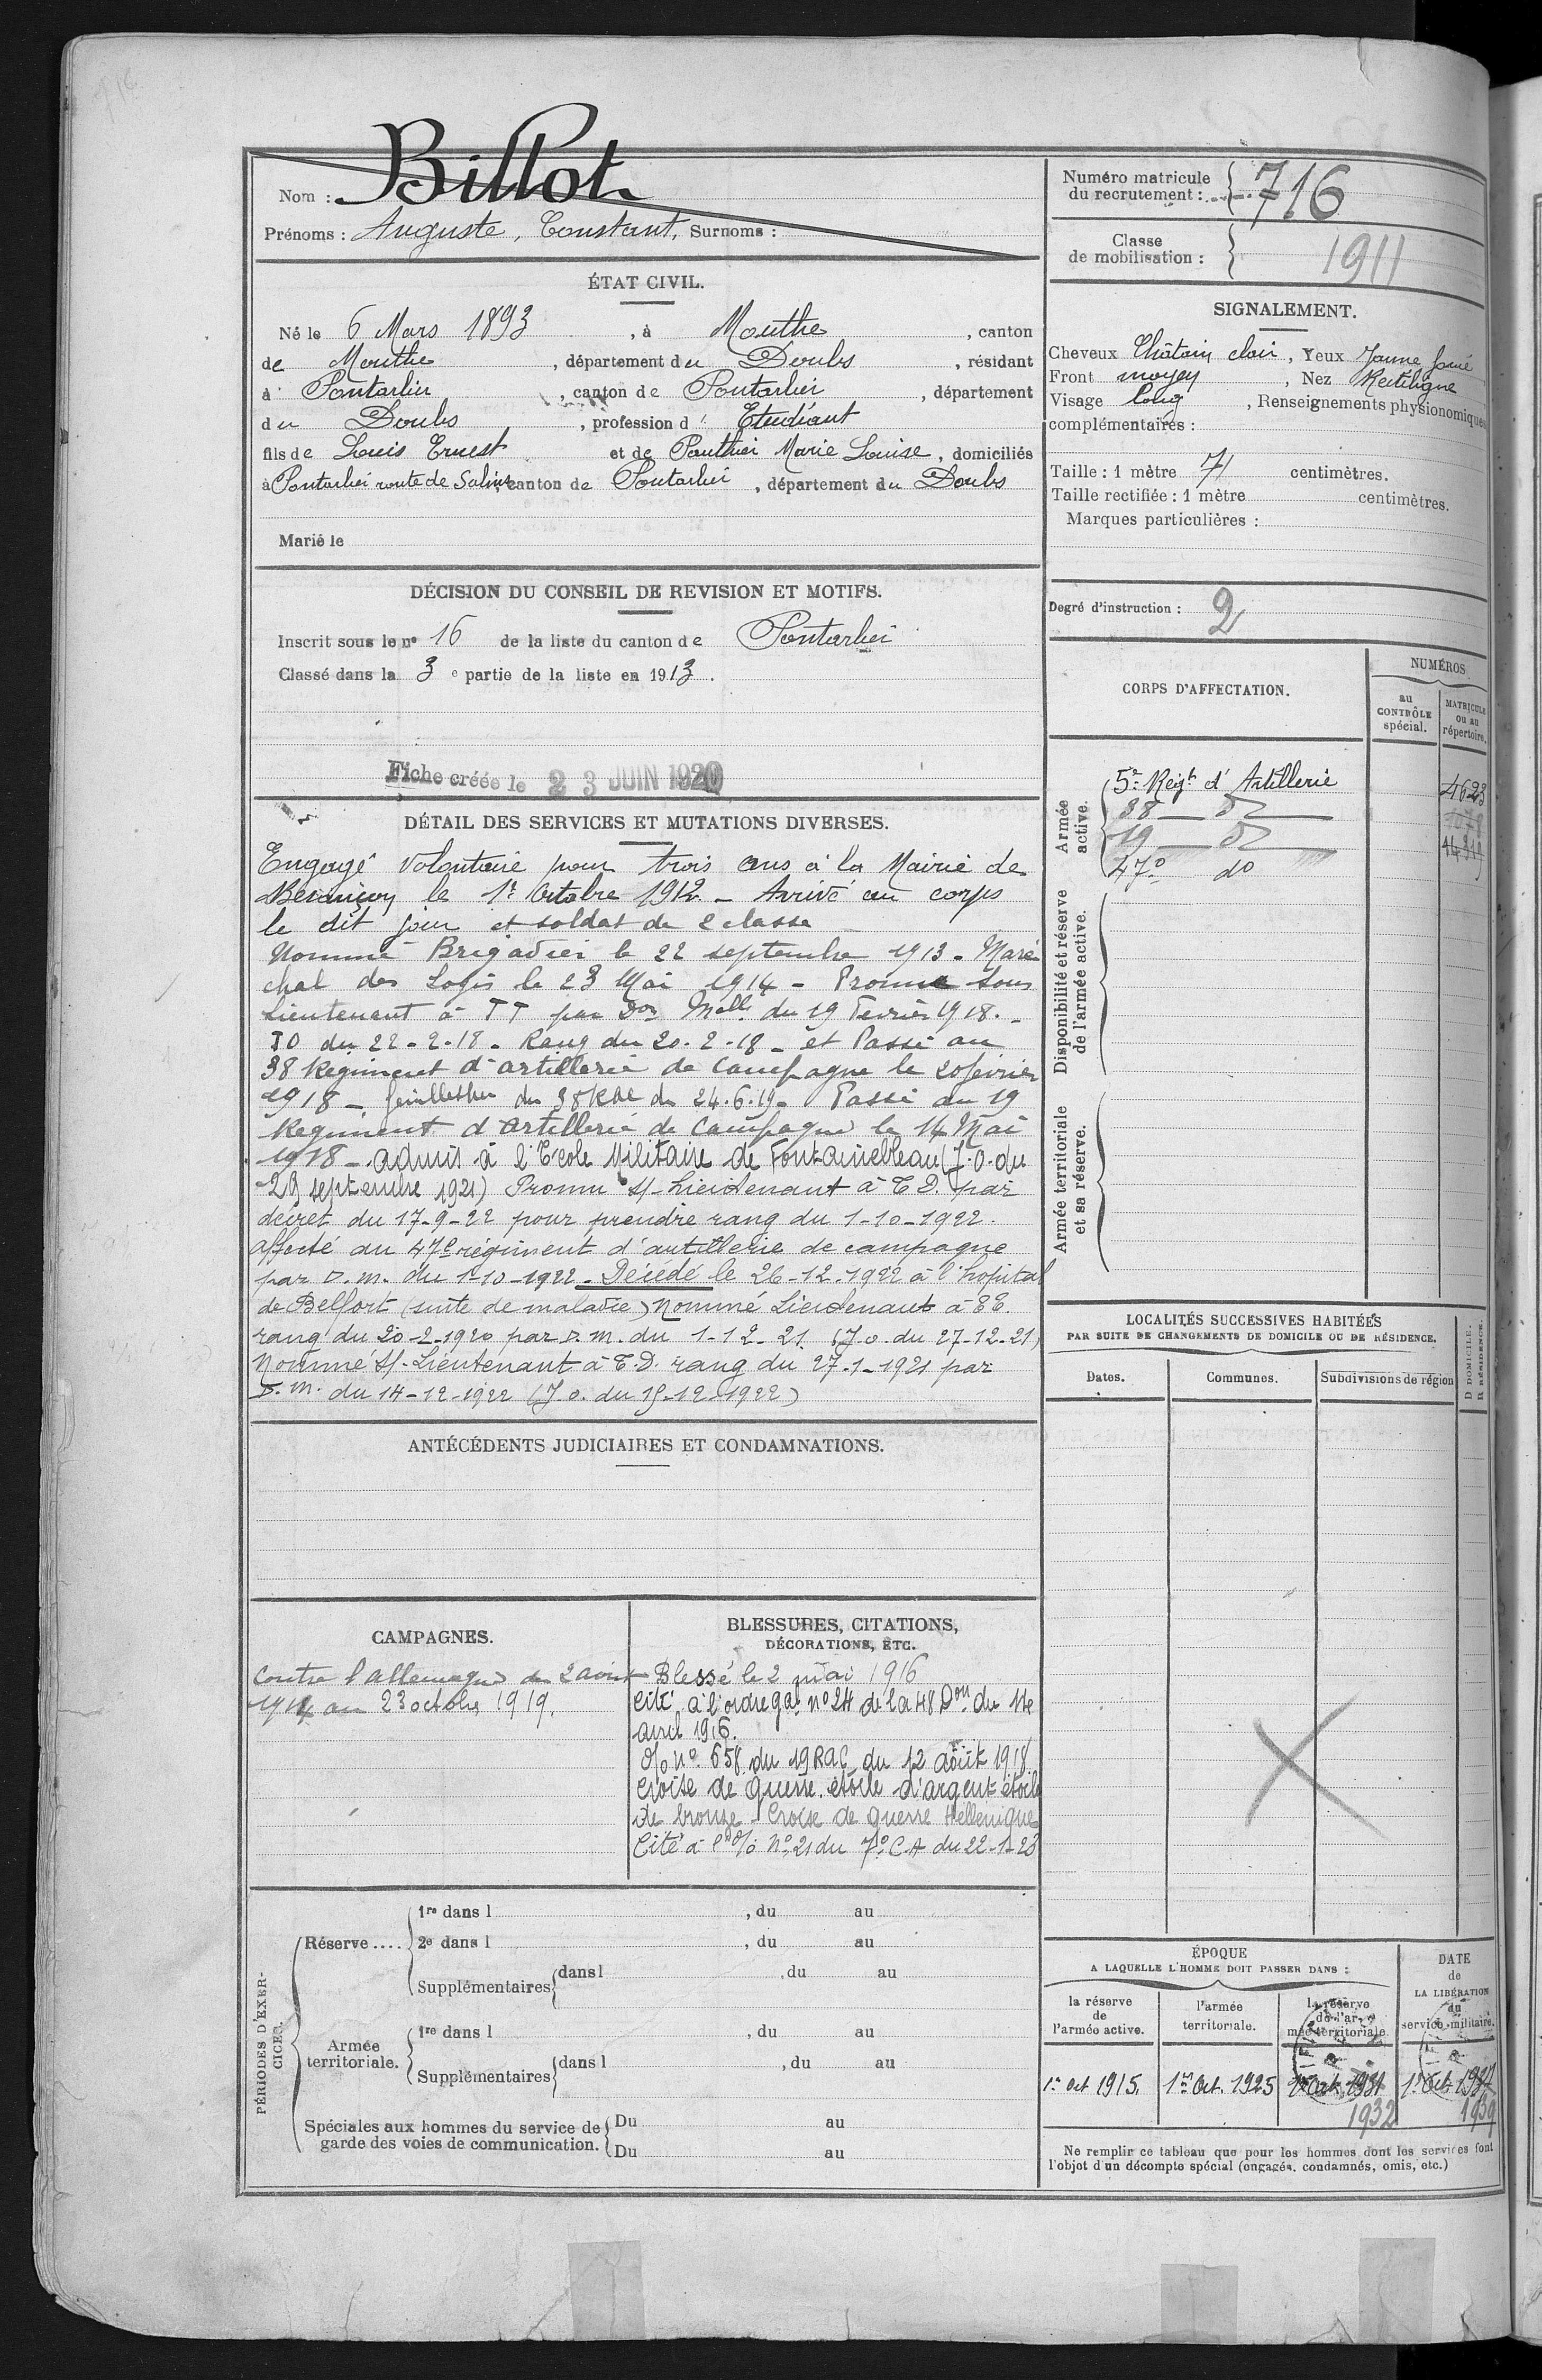 Nom : Billot
Prénoms : Auguste, Constant, Surnoms :
ÉTAT CIVIL.
Né le 6 Mars 1893, à Mouthe, canton
de Mouthe, département du Doubs, résidant
à Pontarlier, canton de Pontarlier, département
du Doubs, profession d' Etudiant
fils de Louis Ernest et de Pauthier Marie Louise, domiciliés
à Pontarlier route de Salins, canton de Pontarlier, département du Doubs
Marié le
DÉCISION DU CONSEIL DE REVISION ET MOTIFS.
Inscrit sous le no 16 de la liste du canton de Pontarlier
Classé dans la 3 e partie de la liste en 1913.
Fiche créée le 23 JUIN 1920
DÉTAIL DES SERVICES ET MUTATIONS DIVERSES.
Engagé Volontaire pour trois ans à la Mairie de
Besançon le 1r Octobre 1912 - Arrivé au corps
le dit jour et soldat de 2 classe
Nommé Brigadier le 22 septembre 1913 - Maré
chal des Logis le 23 Mai 1914 - Promu Sous
Lieutenant à TT par Don Melle du 19 Fevrier 1918. -
JO du 22-2-18 - Rang du 20-2-18 - et Passé au
38 Regiment d'artillerie de Campagne le 20 février
1918 - du 38 RAC du 24.6.19. Passé au 19
Regiment d'Artillerie de Campagne le 14 Mai
1918 - admis à l'Ecole Militaire de Fontainebleau (J.O. du
29 septembre 1921) Promu s/-Lieutenant à T.D. par
décret du 17-9-22 pour prendre rang du 1-10-1922.
affecté au 47e régiment d'artillerie de campagne
par D.M. du 1-10-1922 - Décédé le 26-12-1922 à l'hopital
de Belfort (suite de maladie) Nommé Lieutenant à T.T.
rang du 20-2-1920 par D.M. du 1-12-21 (J.O. du 27-12-21)
Nommé s/-Lieutenant à T.D. rang du 27-1-1921 par
D.M. du 14-12-1922 (J.O. du 15-12-1922)
ANTÉCÉDENTS JUDICIAIRES ET CONDAMNATIONS.
CAMPAGNES.
Contre l'allemagne du 2 août
1914 au 23 octobre 1919.
BLESSURES, CITATIONS,
DÉCORATIONS, ETC.
Blessé le 2 mai 1916
Cité à l'ordre gal no 24 de la 48 Don du 14
avril 1916.
O/o No 658 du 19 RAC du 12 août 1918
Croise de Guerre. étoile d'argent étoile
de bronze - Croix de guerre Hellenique
Cité à l'O/o No 21 du 7o CA du 22-1-23
PÉRIODES D'EXERCICES.
Réserve.... 1re dans l , du au
2e dans l , du au
Supplémentaires dans l , du au
Armée territoriale. 1re dans l , du au
Supplémentaires dans l , du au
Spéciales aux hommes du service de garde des voies de communication. Du au
Du au
Numéro matricule
du recrutement : 716
Classe
de mobilisation : 1911
SIGNALEMENT.
Cheveux Châtain clair, Yeux Jaune foncé
Front moyen, Nez Rectiligne
Visage long, Renseignements physionomiques
complémentaires :
Taille : 1 mètre 71 centimètres.
Taille rectifiée : 1 mètre centimètres.
Marques particulières :
Degré d'instruction : 2
CORPS D'AFFECTATION.
NUMÉROS
au CONTRÔLE spécial.
MATRICULE ou au répertoire.
Armée active.
5e Regt d'Artillerie 4623
38 — do 1078
19 — do
47o do
Disponibilité et réserve de l'armée active.
Armée territoriale et sa réserve.
LOCALITÉS SUCCESSIVES HABITÉES
PAR SUITE DE CHANGEMENTS DE DOMICILE OU DE RÉSIDENCE.
Dates.
Communes.
Subdivisions de région
D DOMICILE.
R RÉSIDENCE.
ÉPOQUE
A LAQUELLE L'HOMME DOIT PASSER DANS :
la réserve de l'armée active.
l'armée territoriale.
la réserve de l'armée territoriale.
DATE de LA LIBÉRATION du service militaire.
1r Oct 1915.
1er Oct. 1925
1er Oct. 1931
1932
1r Oct. 1937
1939
Ne remplir ce tableau que pour les hommes dont les services font
l'objet d'un décompte spécial (engagés, condamnés, omis, etc.)